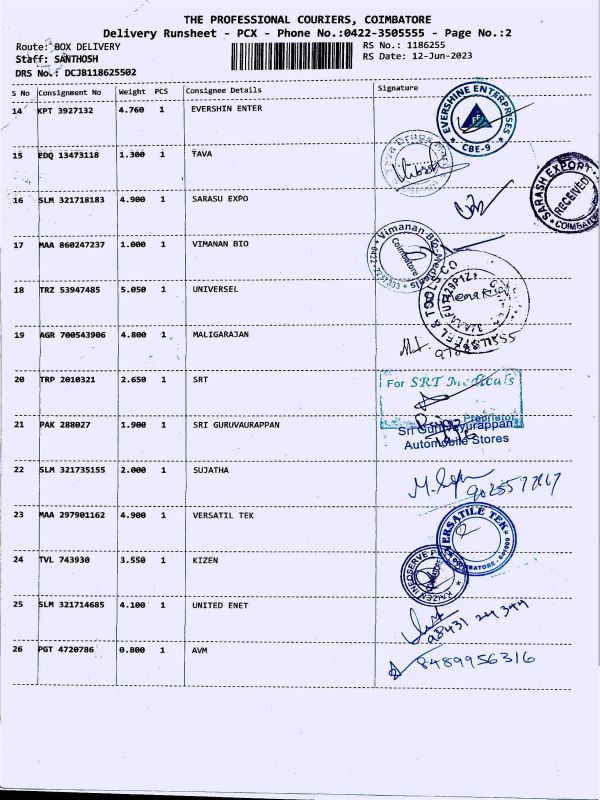 THE PROFESSIONAL COURIERS, COIMBATORE
Delivery Runsheet - PCX - Phone No.:0422-3505555 - Page No.:2
Route: BOX DELIVERY
RS No.: 1186255
Staff: SANTHOSH
RS Date: 12-Jun-2023
DRS No.: DCJB118625502
S No Consignment No Weight PCS Consignee Details Signature
14 KPT 3927132 4.760 1 EVERSHIN ENTER
EVERSHINE ENTERPRISES
CBE-9
15 EDQ 13473118 1.300 1 TAVA
16 SLM 321718183 4.900 1 SARASU EXPO
SARASH EXPORT
RECEIVED
COIMBATORE
17 MAA 860247237 1.000 1 VIMANAN BIO
Vimanan Bio-Medicals
Coimbatore
18 TRZ 53947485 5.050 1 UNIVERSEL
19 AGR 700543906 4.800 1 MALIGARAJAN
20 TRP 2010321 2.650 1 SRT
For SRT Medicals
Proprietor
21 PAK 288027 1.900 1 SRI GURUVAURAPPAN
Sri Guruvayurappan
Automobile Stores
22 SLM 321735155 2.000 1 SUJATHA
23 MAA 297901162 4.900 1 VERSATIL TEK
VERSATILE TEK
24 TVL 743930 3.550 1 KIZEN
KAIZEN INFOSERVE
25 SLM 321714685 4.100 1 UNITED ENET
98431 24344
26 PGT 4720786 0.800 1 AVM
8489956316